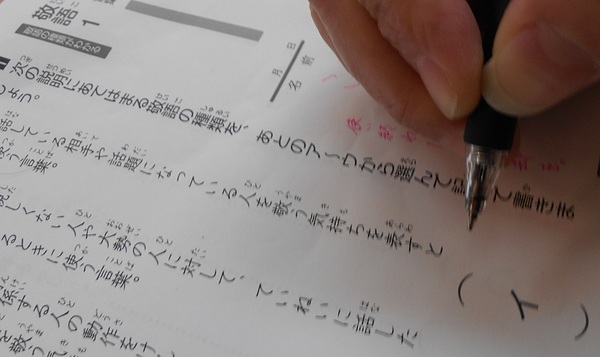 敬語 1
敬語の種類がわかる
月 日
名前
次の説明にあてはまる敬語の種類を、あとのア〜ウから選んで記 で書きま
しょう。
話している相手や話題になっている人を敬う気持ちを表すと
使う言葉。
しくない人や大勢の人に対して、ていねいに話した
るときに使う言葉。
(イ)
係する人の動作をけ
を敬う気